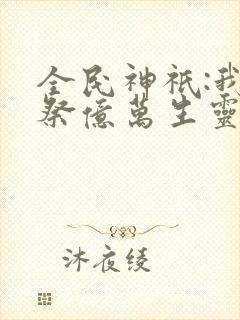 全民神祇:我
祭億萬生靈
沐夜绫